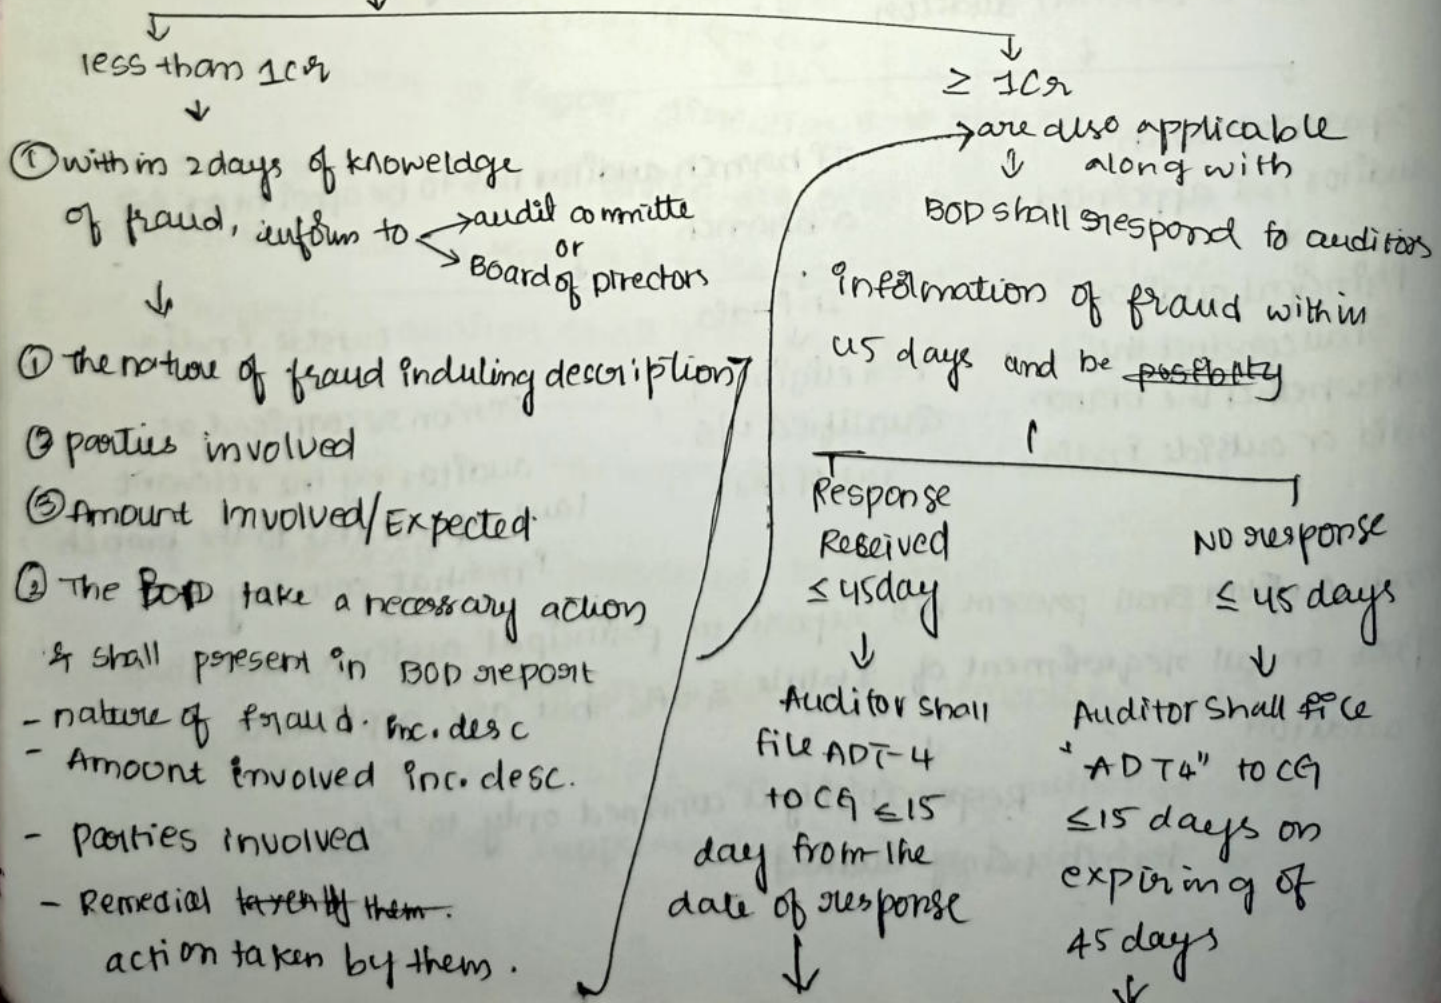 less than 1Cr
① within 2days of knoweldge
of fraud, inform to
audit committe
or
Board of Directors
① The nature of fraud induling description
② parties involved
③ Amount Involved/Expected.
② The BOD take a necessary action
& shall present in BOD report
- nature of fraud. inc. desc
- Amount involved inc. desc.
- Parties involved
- Remedial taken by them.
action taken by them.
≥ 1Cr
are also applicable
along with
BOD shall respond to auditors
information of fraud within
45 days and be
Response
Received
≤ 45day
Auditor shall
file ADT-4
to CG ≤ 15
day from the
date of response
NO response
≤ 45 days
Auditor Shall file
"ADT4" to CG
≤15 days on
expiring of
45 days